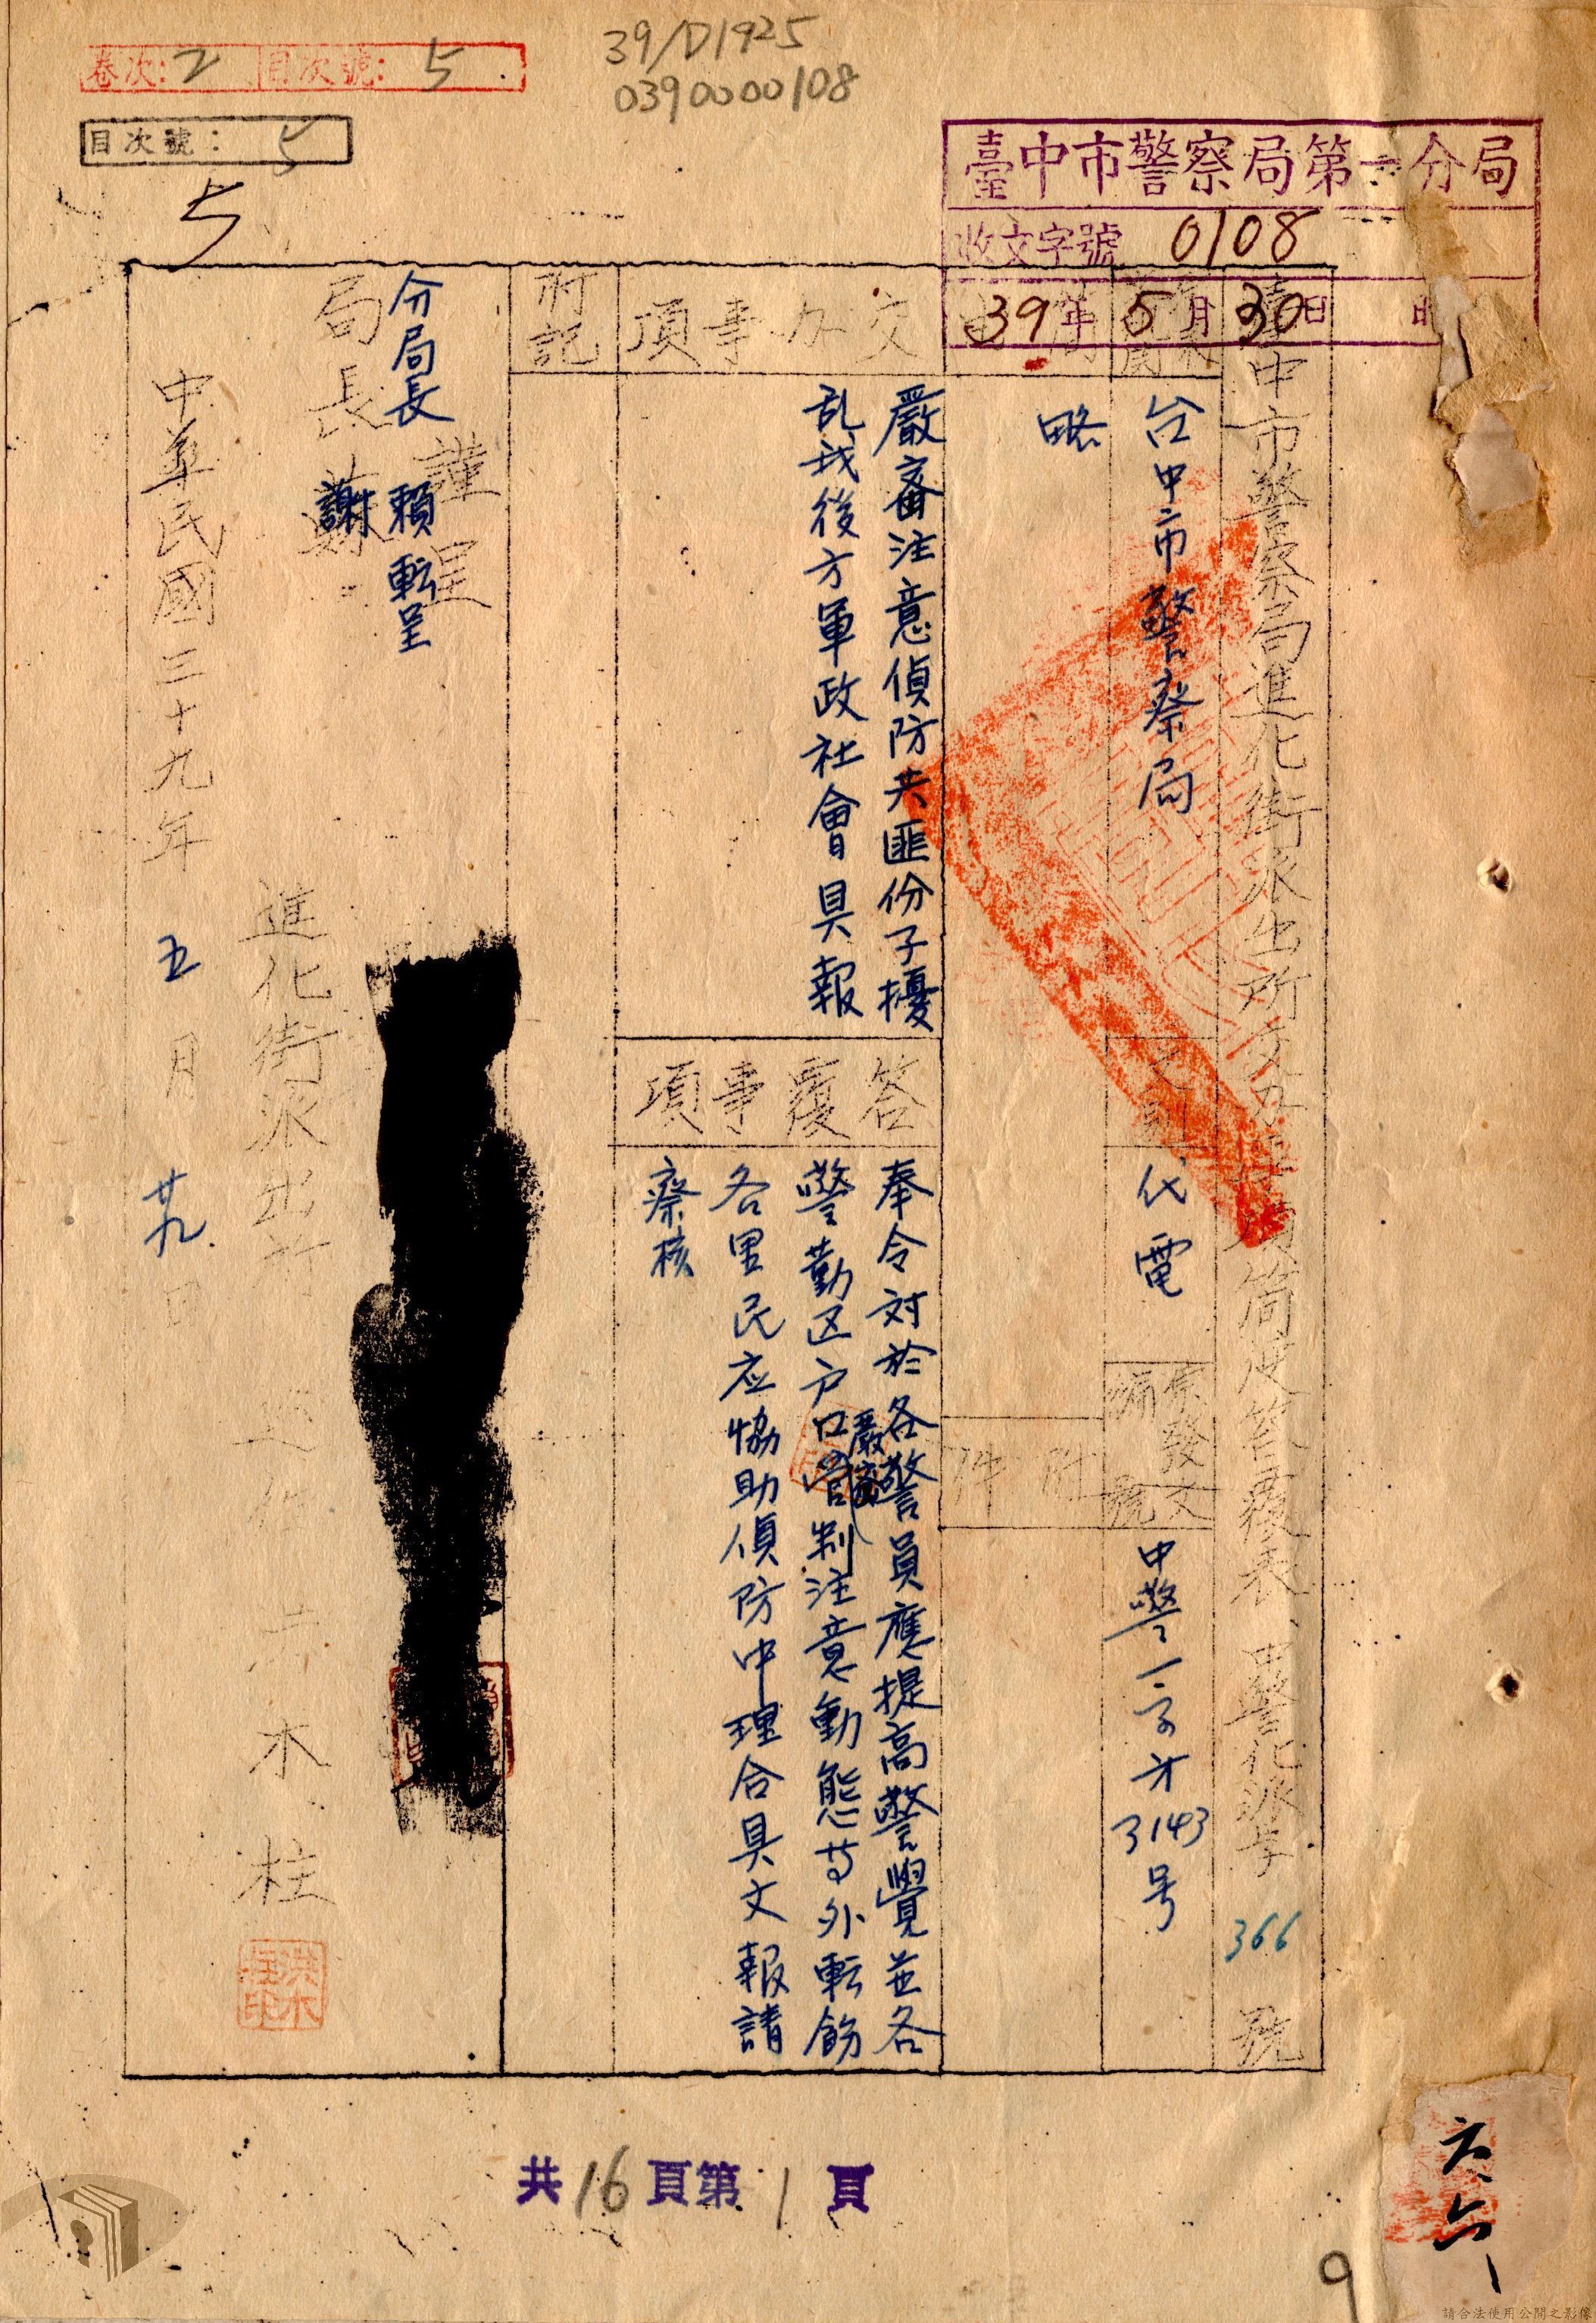 39/D1925
0390000108
卷次:2 目次號:5
目次號:5
5
臺中市警察局第一分局
收文字號 0108
39年5月30日 時
臺中市警察局進化街派出所交办事項簡便答覆表 中警化派字 366 號
台中市警察局
文別
代電
原發文
編號
中警一字才3143号
略
附件
交办事項
嚴審注意偵防共匪份子擾
乱我後方軍政社會具報
答覆事項
奉令对於各警員應提高警覺並各
警勤区户口嚴密管制注意動態等外転飭
各里民应協助偵防中理合具文報請
察核
附記
謹呈
分局長 賴転呈
局長 謝
進化街派出所
木柱
洪木柱印
中華民國三十九年五月廿九日
共16頁第1頁
9
六六
請合法使用公開之影像